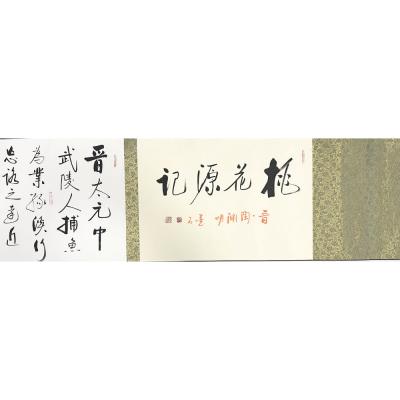 桃花源记
晋·陶渊明
晋太元中
武陵人捕魚
為業缘溪行
忘路之遠近